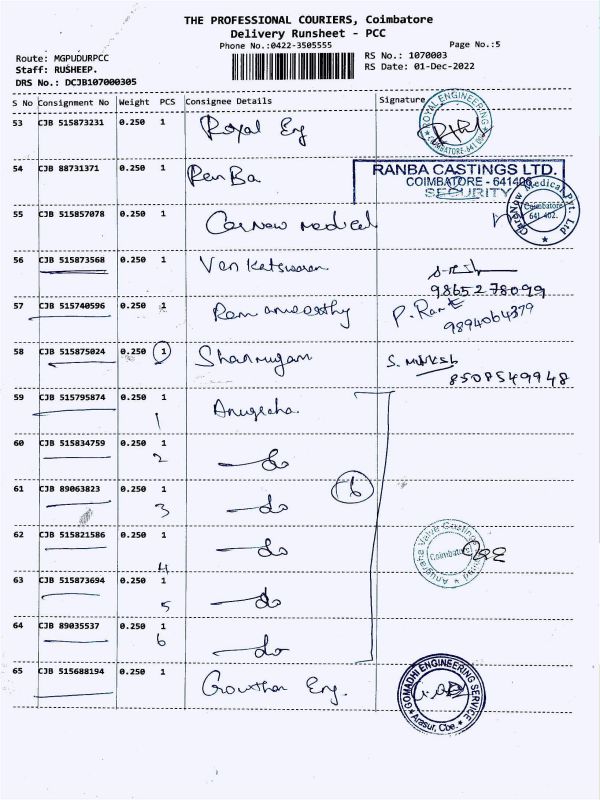 THE PROFESSIONAL COURIERS, Coimbatore
Delivery Runsheet - PCC
Phone No.:0422-3505555 Page No.:5
Route: MGPUDURPCC RS No.: 1070003
Staff: RUSHEEP. RS Date: 01-Dec-2022
DRS No.: DCJB107000305
S No Consignment No Weight PCS Consignee Details Signature
53 CJB 515873231 0.250 1 Royal Eng
ROYAL ENGINEERING
54 CJB 88731371 0.250 1 RenBa
RANBA CASTINGS LTD.
COIMBATORE - 641406
SECURITY
55 CJB 515857078 0.250 1 Carnew medical
CareNow Medical Pvt. Ltd
Coimbatore
641 402.
56 CJB 515873568 0.250 1 Venkateswaran
9865278099
57 CJB 515740596 0.250 1 Ramamoorthy P. Ram
9894064379
58 CJB 515875024 0.250 1 Shanmugam
8508549948
59 CJB 515795874 0.250 1 Anugraha
1
60 CJB 515834759 0.250 1 do
2
61 CJB 89063823 0.250 1 do 6
3
62 CJB 515821586 0.250 1 do
4
Coimbatore
63 CJB 515873694 0.250 1 do
5
64 CJB 89035537 0.250 1 do
6
65 CJB 515688194 0.250 1 Gowtham Eng.
GOMADHI ENGINEERING SERVICE
Arasur, Cbe.